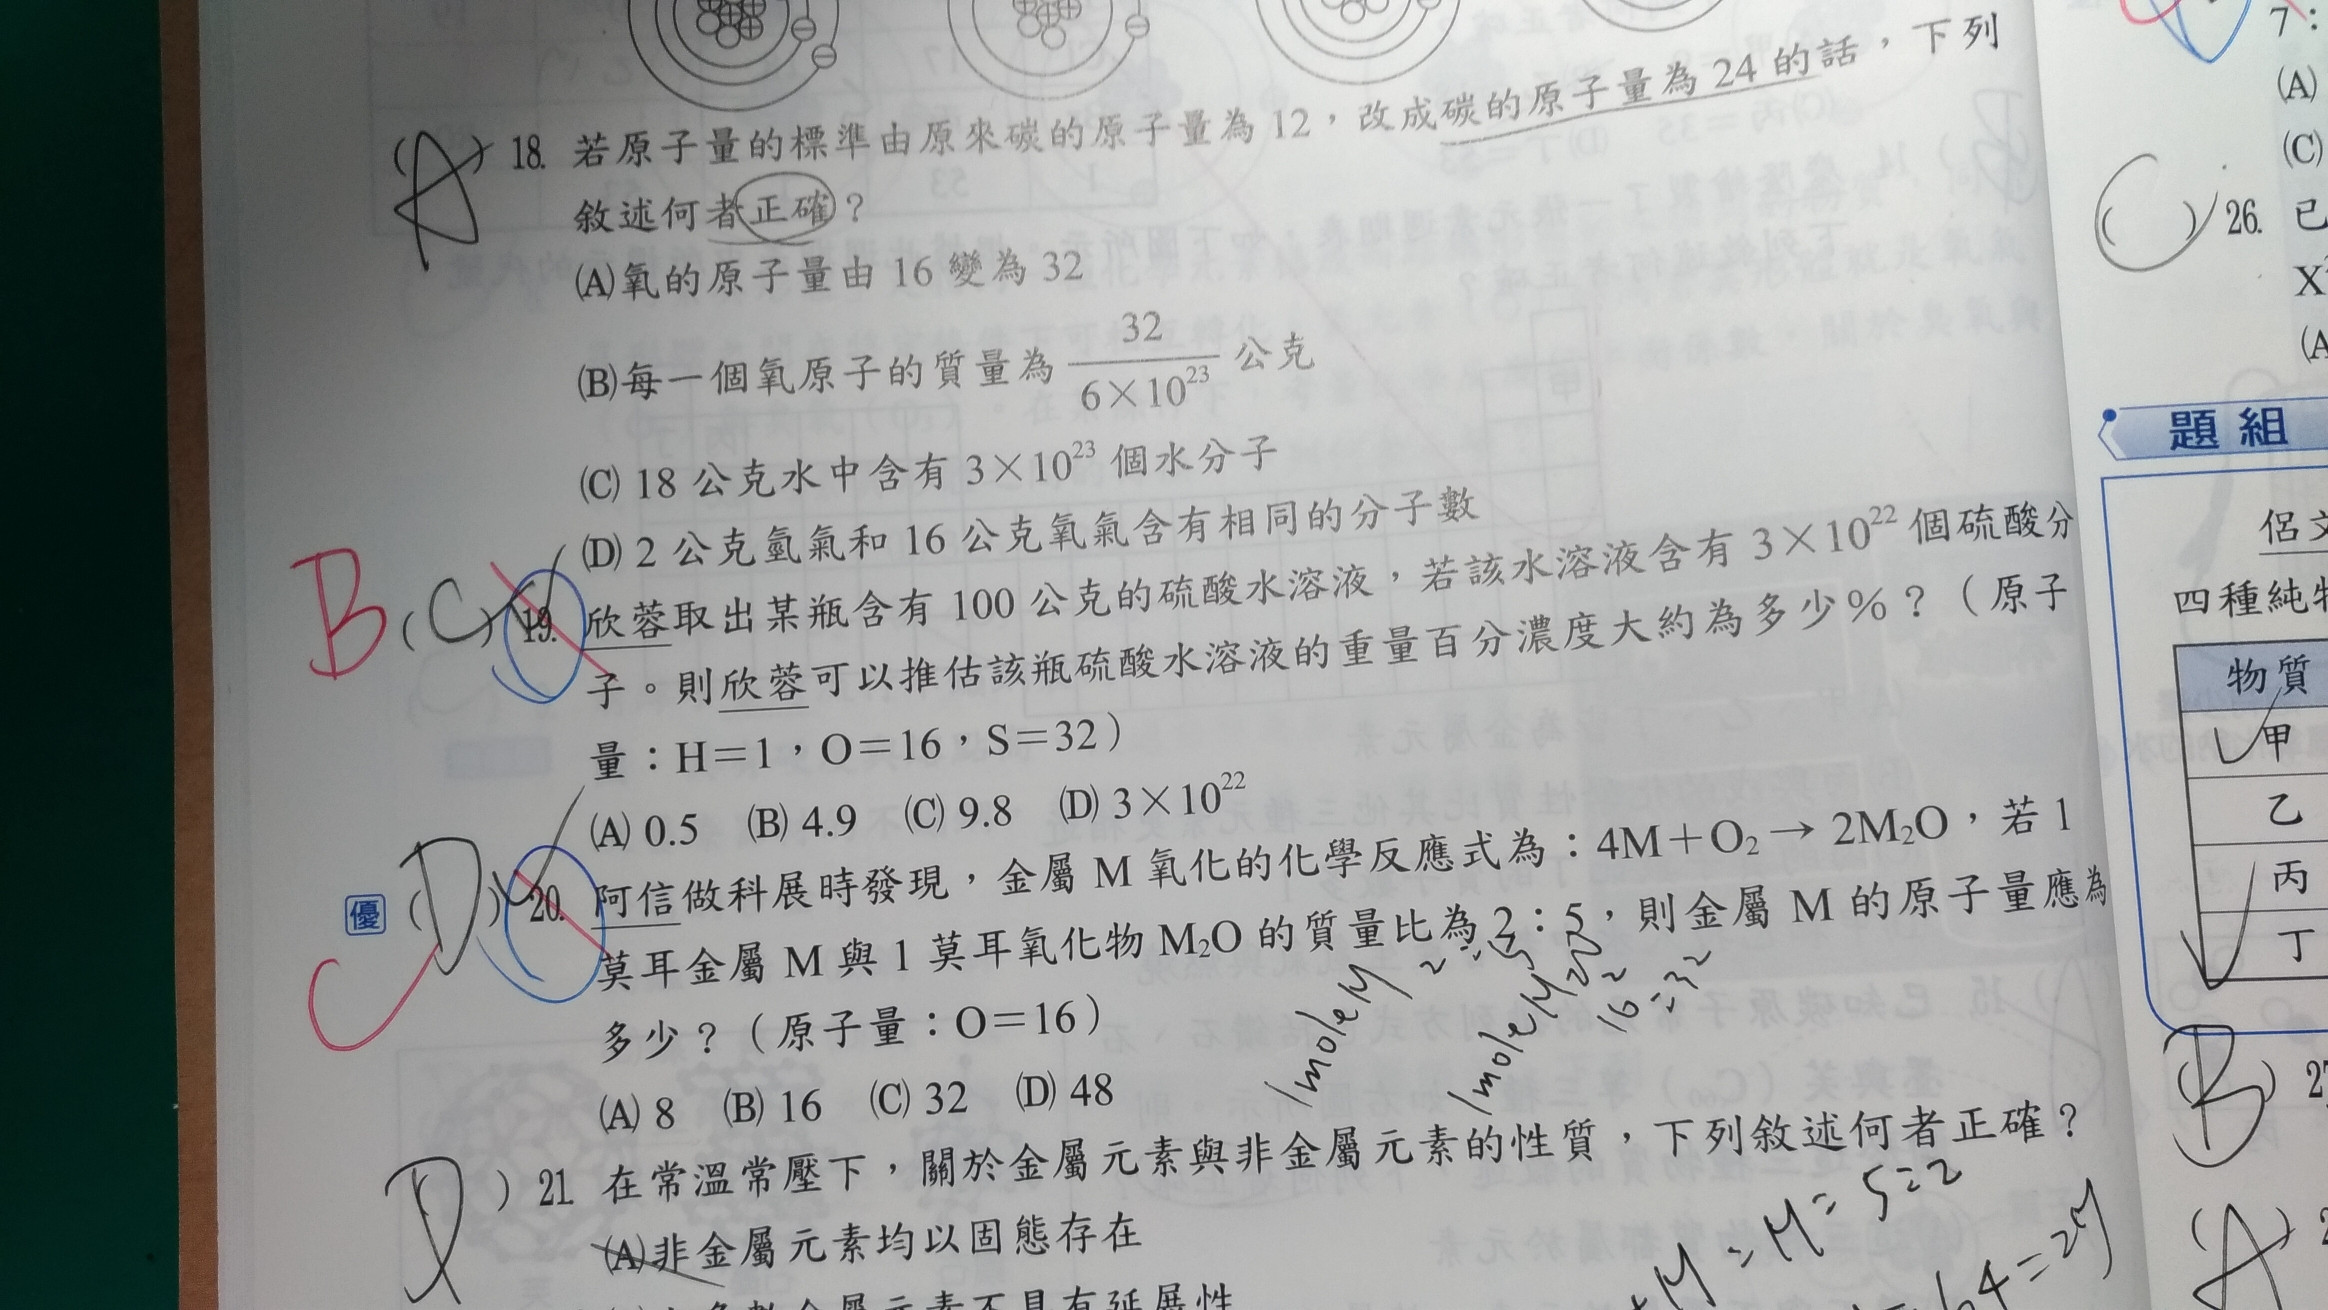 (A) 18. 若原子量的標準由原來碳的原子量為 12，改成碳的原子量為 24 的話，下列
敘述何者正確？
(A)氧的原子量由 16 變為 32
(B)每一個氧原子的質量為 32/6×10²³ 公克
(C) 18 公克水中含有 3×10²³ 個水分子
(D) 2 公克氫氣和 16 公克氧氣含有相同的分子數
B (C) 19. 欣蓉取出某瓶含有 100 公克的硫酸水溶液，若該水溶液含有 3×10²² 個硫酸分
子。則欣蓉可以推估該瓶硫酸水溶液的重量百分濃度大約為多少%？（原子
量：H＝1，O＝16，S＝32）
(A) 0.5 (B) 4.9 (C) 9.8 (D) 3×10²²
優 (D) 20. 阿信做科展時發現，金屬 M 氧化的化學反應式為：4M＋O₂ → 2M₂O，若 1
莫耳金屬 M 與 1 莫耳氧化物 M₂O 的質量比為 2：5，則金屬 M 的原子量應為
多少？（原子量：O＝16）
(A) 8 (B) 16 (C) 32 (D) 48
1mole M
1mole M
) 21. 在常溫常壓下，關於金屬元素與非金屬元素的性質，下列敘述何者正確？
(A)非金屬元素均以固態存在
金屬元素不具有延展性
7：
(A)
(C)
( ) 26. 已
X
(A
題組
侶文
四種純物
物質
甲
乙
丙
丁
(B) 27
(A)